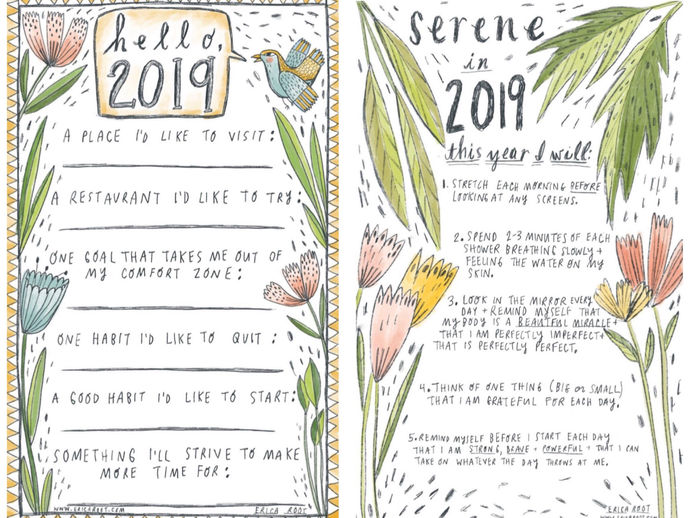 hello,
2019
A PLACE I'D LIKE TO VISIT:
A RESTAURANT I'D LIKE TO TRY:
ONE GOAL THAT TAKES ME OUT OF
MY COMFORT ZONE:
ONE HABIT I'D LIKE TO QUIT:
A GOOD HABIT I'D LIKE TO START:
SOMETHING I'LL STRIVE TO MAKE
MORE TIME FOR:
WWW.ERICAROOT.COM
ERICA ROOT
serene
in
2019
this year I will:
1. STRETCH EACH MORNING BEFORE
LOOKING AT ANY SCREENS.
2. SPEND 2-3 MINUTES OF EACH
SHOWER BREATHING SLOWLY +
FEELING THE WATER ON MY
SKIN.
3. LOOK IN THE MIRROR EVERY
DAY + REMIND MYSELF THAT
MY BODY IS A BEAUTIFUL MIRACLE +
THAT I AM PERFECTLY IMPERFECT +
THAT IS PERFECTLY PERFECT.
4. THINK OF ONE THING (BIG OR SMALL)
THAT I AM GRATEFUL FOR EACH DAY.
5. REMIND MYSELF BEFORE I START EACH DAY
THAT I AM STRONG, BRAVE + POWERFUL + THAT I CAN
TAKE ON WHATEVER THE DAY THROWS AT ME.
ERICA ROOT